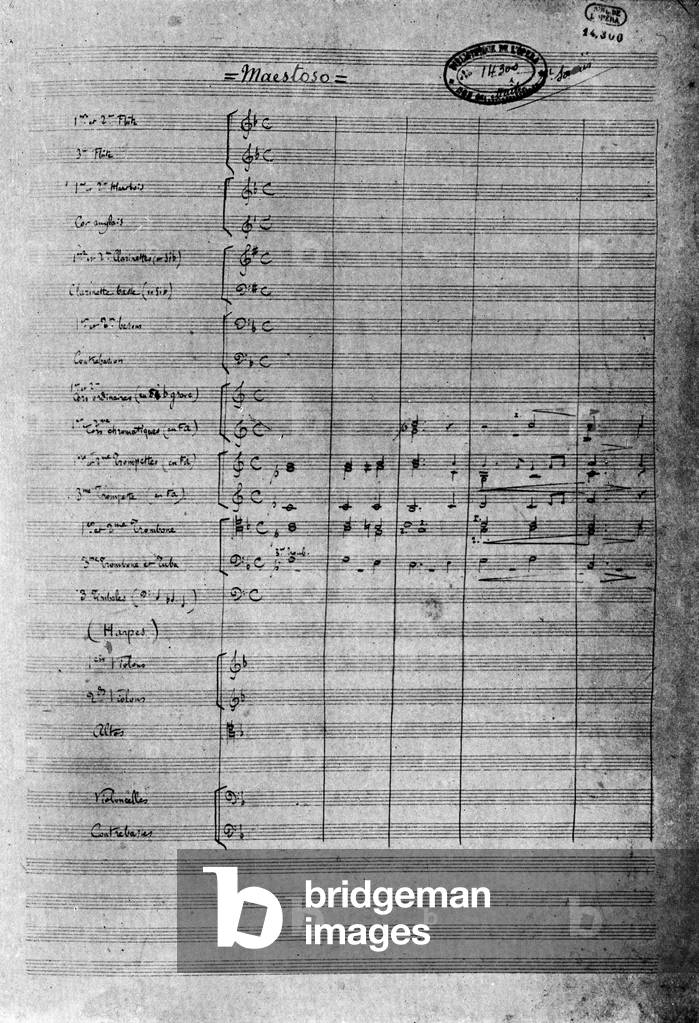 BIBL. DE
L'OPÉRA
14.300
BIBLIOTHÈQUE DE L'OPÉRA
No 14300
=Maestoso=
1re et 2e Flûte
3e Flûte
1er et 2e Hautbois
Cor anglais
1re et 2e Clarinettes (en sib)
Clarinette basse (en sib)
1er et 2e basson
Contrebasson
1er et 2e
Cors ordinaires (en sib grave)
Cors chromatiques (en Fa)
1re et 2me Trompettes (en Fa)
3me Trompette (en Fa)
1er et 2me Trombone
3e Tromb.
3me Trombone et Tuba
3 Timbales
(Harpes)
1ers Violons
2ds Violons
Altos
Violoncelles
Contrebasses
b bridgeman
images